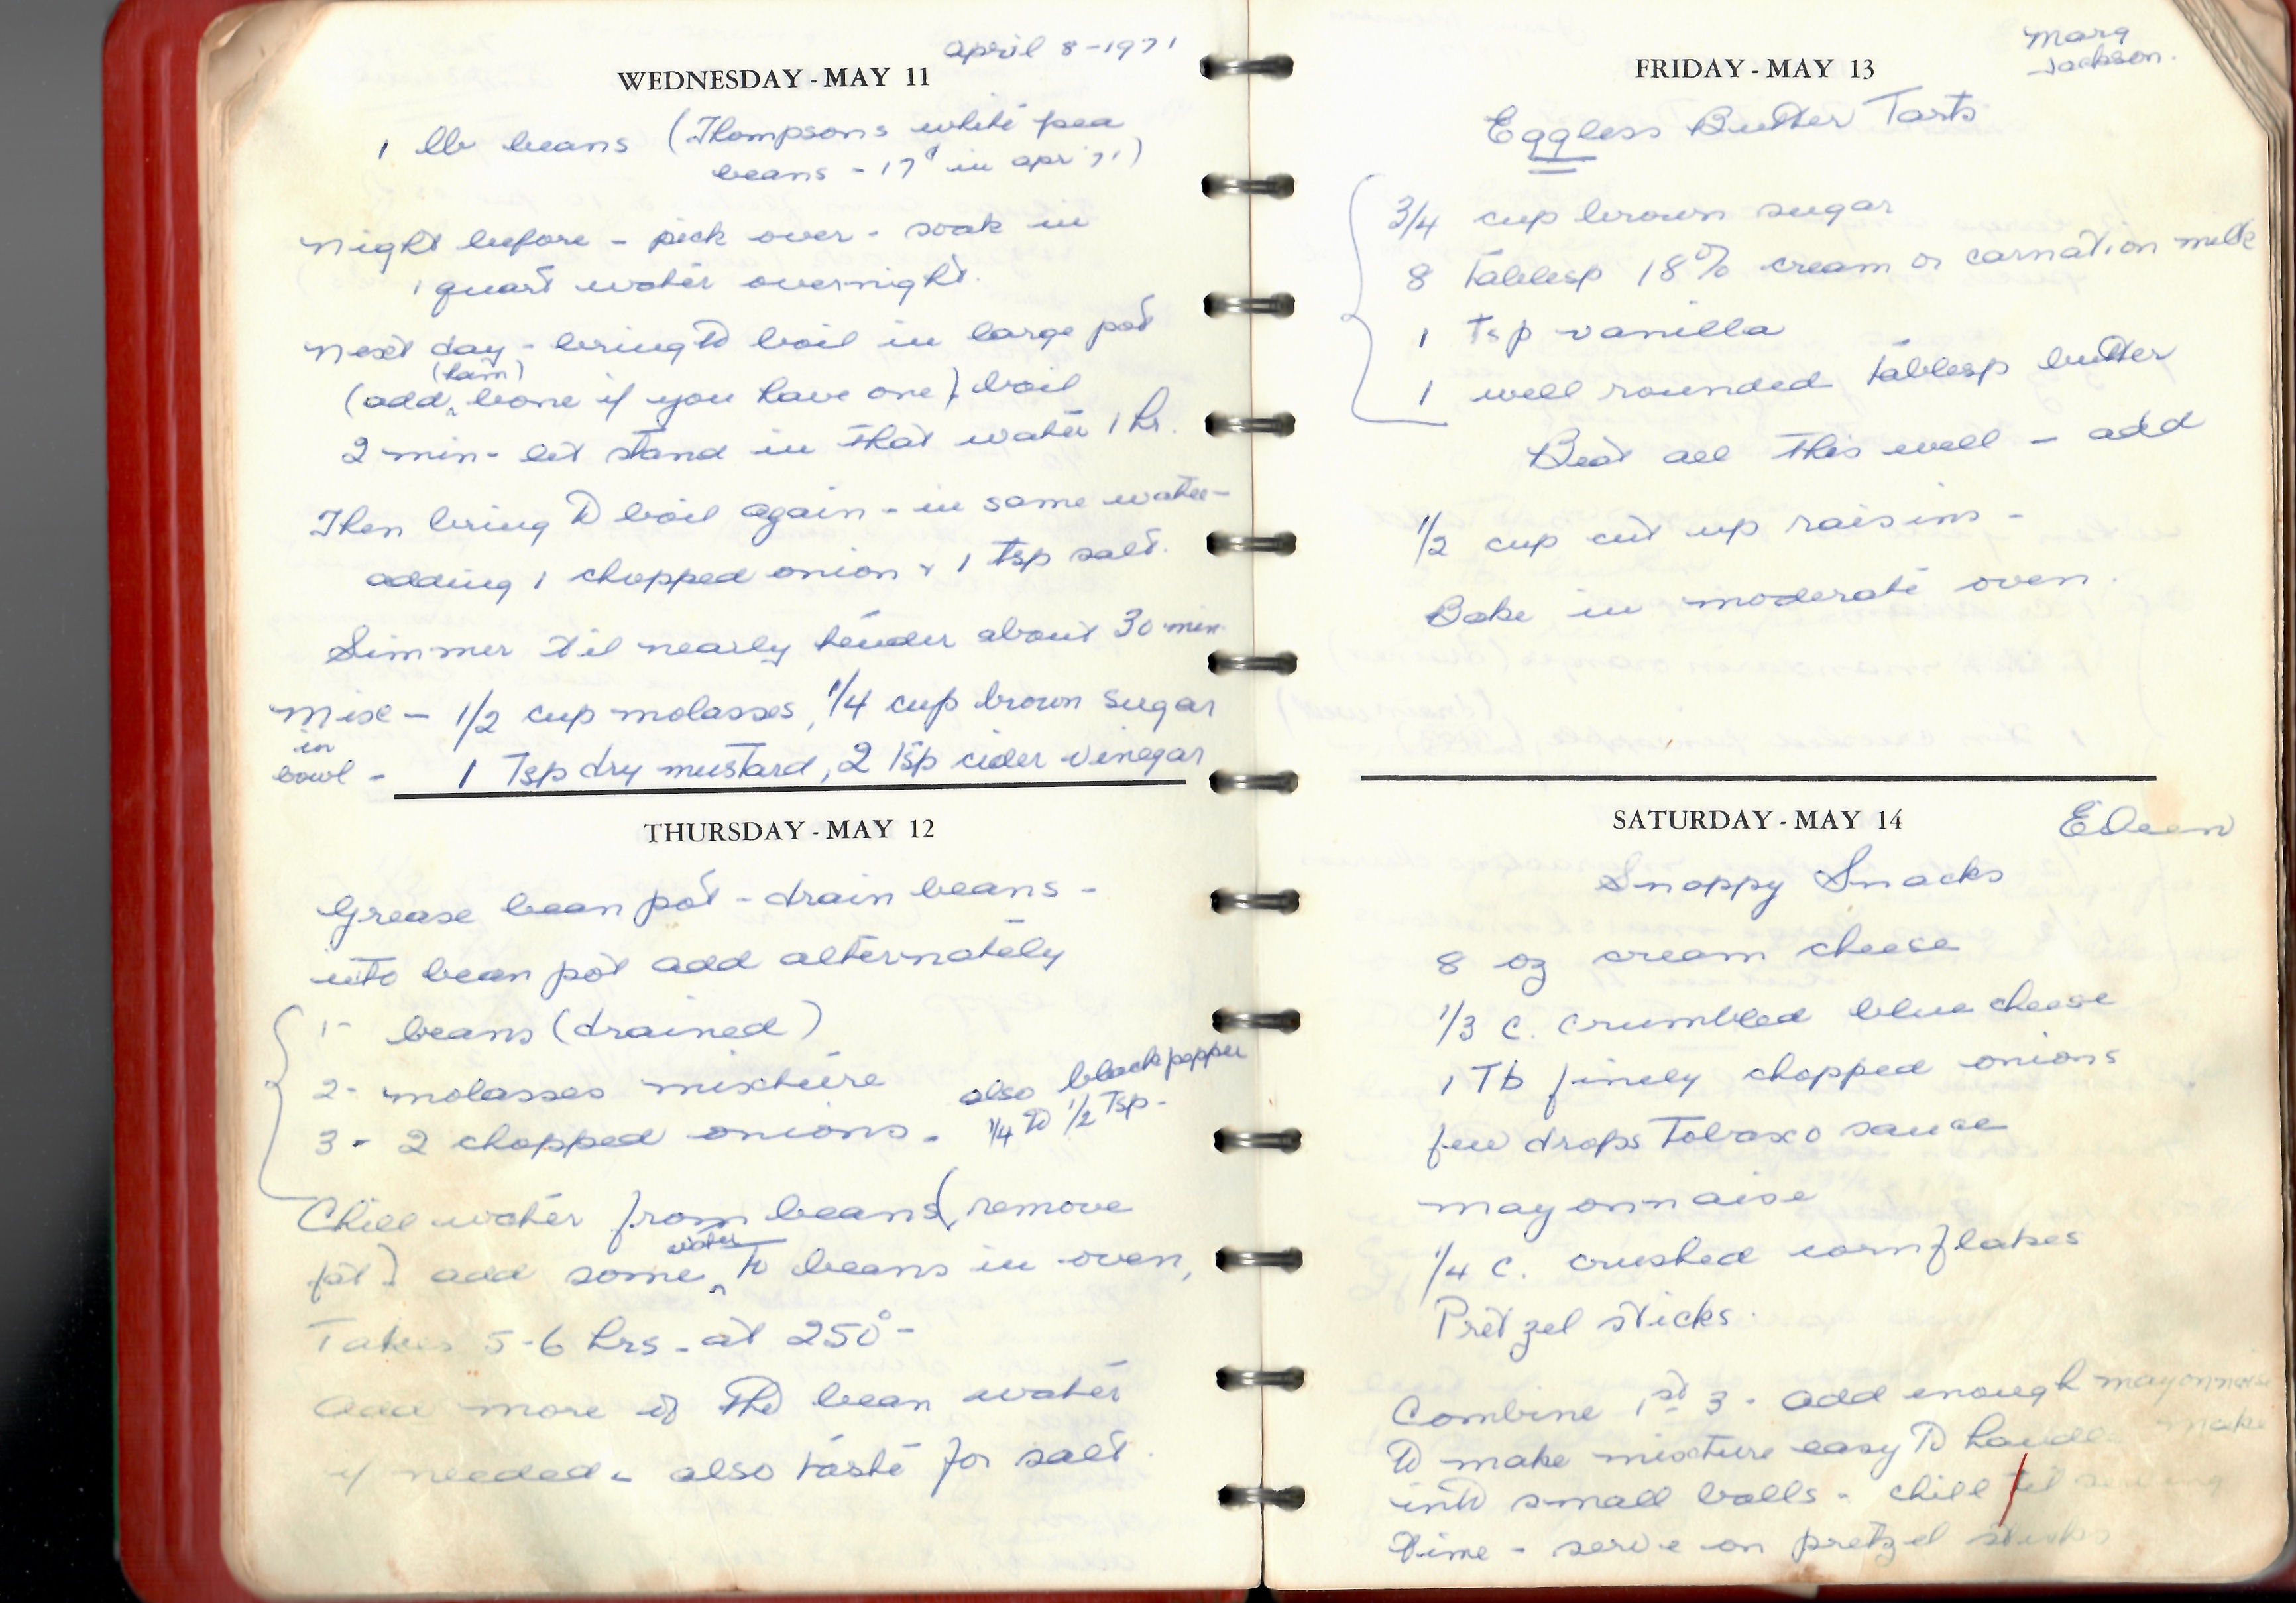 April 8-1971
WEDNESDAY - MAY 11
1 lb beans (Thompsons white pea
beans - 17¢ in apr '71)
Night before - pick over - soak in
1 quart water overnight.
Next day - bring to boil in large pot
(ham)
(add ^ bone if you have one) boil
2 min - let stand in that water 1 hr.
Then bring to boil again - in same water -
adding 1 chopped onion + 1 tsp salt.
Simmer til nearly tender about 30 min.
Mix - 1/2 cup molasses, 1/4 cup brown sugar
in
bowl - 1 Tsp dry mustard, 2 Tsp cider vinegar
THURSDAY - MAY 12
Grease bean pot - drain beans -
into bean pot add alternately
1- beans (drained)
2- molasses mixture
3- 2 chopped onions.
also black pepper
1/4 to 1/2 Tsp -
Chill water from beans (remove
water
fat) add some ^ to beans in oven,
Takes 5-6 hrs - at 250° -
Add more of the bean water
if needed - also taste for salt.
Marg
Jackson.
FRIDAY - MAY 13
Eggless Butter Tarts
3/4 cup brown sugar
8 Tablesp 18% cream or carnation milk
1 Tsp vanilla
1 well rounded Tablesp butter
Beat all this well - add
1/2 cup cut up raisins -
Bake in moderate oven.
SATURDAY - MAY 14
Eileen
Snappy Snacks
8 oz cream cheese
1/3 c. crumbled blue cheese
1 Tb finely chopped onions
few drops Tobasco sauce
mayonnaise
1/4 c. crushed cornflakes
Pretzel sticks.
Combine 1st 3 - add enough mayonnaise
to make mixture easy to handle make
into small balls - chill til serving
time - serve on pretzel sticks